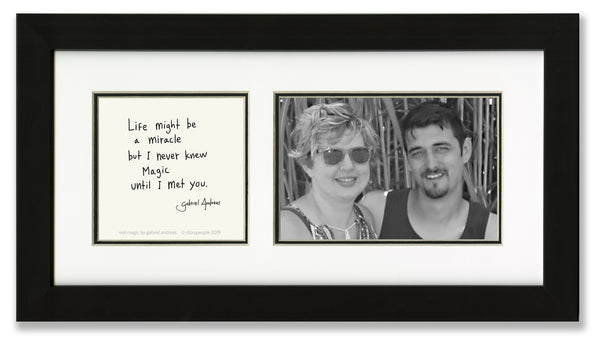 Life might be
a miracle
but I never knew
Magic
until I met you.
Gabriel Andreas
real magic by gabriel andreas © storypeople 2019